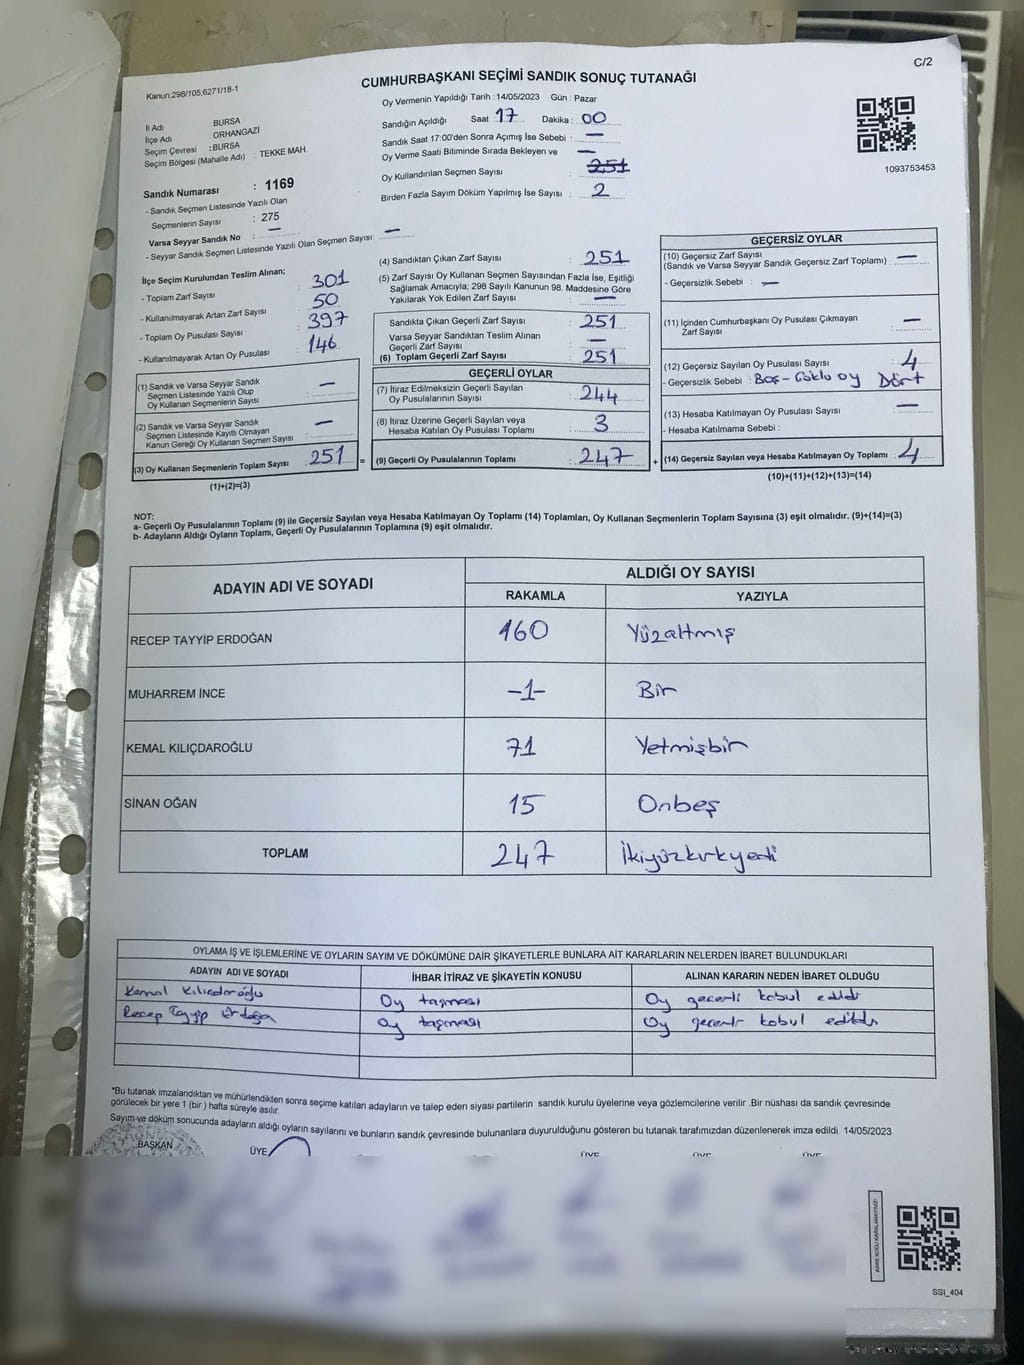 C/2
CUMHURBAŞKANI SEÇİMİ SANDIK SONUÇ TUTANAĞI
Kanun:298/105,6271/18-1
Oy Vermenin Yapıldığı Tarih : 14/05/2023 Gün : Pazar
İl Adı BURSA
İlçe Adı ORHANGAZİ
Seçim Çevresi : BURSA
Seçim Bölgesi (Mahalle Adı) : TEKKE MAH.
Sandık Numarası : 1169
- Sandık Seçmen Listesinde Yazılı Olan
Seçmenlerin Sayısı : 275
Varsa Seyyar Sandık No : —
- Seyyar Sandık Seçmen Listesinde Yazılı Olan Seçmen Sayısı: —
Sandığın Açıldığı Saat : 17 Dakika : 00
Sandık Saat 17:00'den Sonra Açımış İse Sebebi : —
Oy Verme Saati Bitiminde Sırada Bekleyen ve —
Oy Kullandırılan Seçmen Sayısı : 251
Birden Fazla Sayım Döküm Yapılmış İse Sayısı : 2
1093753453
İlçe Seçim Kurulundan Teslim Alınan;
- Toplam Zarf Sayısı : 301
- Kullanılmayarak Artan Zarf Sayısı : 50
- Toplam Oy Pusulası Sayısı : 397
- Kullanılmayarak Artan Oy Pusulası : 146
(1) Sandık ve Varsa Seyyar Sandık
Seçmen Listesinde Yazılı Olup
Oy Kullanan Seçmenlerin Sayısı : —
(2) Sandık ve Varsa Seyyar Sandık
Seçmen Listesinde Kayıtlı Olmayan
Kanun Gereği Oy Kullanan Seçmen Sayısı : —
(3) Oy Kullanan Seçmenlerin Toplam Sayısı : 251 =
(1)+(2)=(3)
(4) Sandıktan Çıkan Zarf Sayısı : 251
(5) Zarf Sayısı Oy Kullanan Seçmen Sayısından Fazla İse, Eşitliği
Sağlamak Amacıyla; 298 Sayılı Kanunun 98. Maddesine Göre
Yakılarak Yok Edilen Zarf Sayısı : —
Sandıkta Çıkan Geçerli Zarf Sayısı : 251
Varsa Seyyar Sandıktan Teslim Alınan
Geçerli Zarf Sayısı : —
(6) Toplam Geçerli Zarf Sayısı : 251
GEÇERLİ OYLAR
(7) İtiraz Edilmeksizin Geçerli Sayılan
Oy Pusulalarının Sayısı : 244
(8) İtiraz Üzerine Geçerli Sayılan veya
Hesaba Katılan Oy Pusulası Toplamı : 3
(9) Geçerli Oy Pusulalarının Toplamı : 247 +
GEÇERSİZ OYLAR
(10) Geçersiz Zarf Sayısı
(Sandık ve Varsa Seyyar Sandık Geçersiz Zarf Toplamı) : —
- Geçersizlik Sebebi : —
(11) İçinden Cumhurbaşkanı Oy Pusulası Çıkmayan
Zarf Sayısı : —
(12) Geçersiz Sayılan Oy Pusulası Sayısı : 4
- Geçersizlik Sebebi : Boş-Çoklu oy Dört
(13) Hesaba Katılmayan Oy Pusulası Sayısı : —
- Hesaba Katılmama Sebebi :
(14) Geçersiz Sayılan veya Hesaba Katılmayan Oy Toplamı : 4
(10)+(11)+(12)+(13)=(14)
NOT:
a- Geçerli Oy Pusulalarının Toplamı (9) ile Geçersiz Sayılan veya Hesaba Katılmayan Oy Toplamı (14) Toplamları, Oy Kullanan Seçmenlerin Toplam Sayısına (3) eşit olmalıdır. (9)+(14)=(3)
b- Adayların Aldığı Oyların Toplamı, Geçerli Oy Pusulalarının Toplamına (9) eşit olmalıdır.
ADAYIN ADI VE SOYADI
ALDIĞI OY SAYISI
RAKAMLA YAZIYLA
RECEP TAYYİP ERDOĞAN 160 Yüzaltmış
MUHARREM İNCE -1- Bir
KEMAL KILIÇDAROĞLU 71 Yetmişbir
SİNAN OĞAN 15 Onbeş
TOPLAM 247 İkiyüzkırkyedi
OYLAMA İŞ VE İŞLEMLERİNE VE OYLARIN SAYIM VE DÖKÜMÜNE DAİR ŞİKAYETLERLE BUNLARA AİT KARARLARIN NELERDEN İBARET BULUNDUKLARI
ADAYIN ADI VE SOYADI İHBAR İTİRAZ VE ŞİKAYETİN KONUSU ALINAN KARARIN NEDEN İBARET OLDUĞU
Kemal Kılıçdaroğlu Oy taşması Oy geçerli kabul edildi
Recep Tayyip Erdoğan Oy taşması Oy geçerli kabul edildi
*Bu tutanak imzalandıktan ve mühürlendikten sonra seçime katılan adayların ve talep eden siyasi partilerin sandık kurulu üyelerine veya gözlemcilerine verilir .Bir nüshası da sandık çevresinde
görülecek bir yere 1 (bir ) hafta süreyle asılır.
Sayım ve döküm sonucunda adayların aldığı oyların sayılarını ve bunların sandık çevresinde bulunanlara duyurulduğunu gösteren bu tutanak tarafımızdan düzenlenerek imza edildi. 14/05/2023
BAŞKAN ÜYE ÜYE ÜYE ÜYE
SSI_404